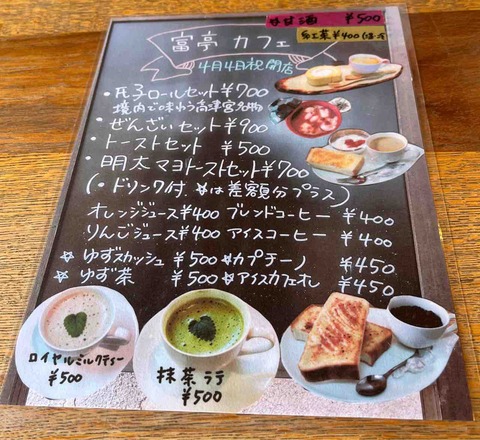 ☆甘酒 ¥500
紅茶¥400
富亭 カフェ
4月4日祝開店
・氏子ロールセット¥700
境内で味わう高津宮名物
・ぜんざいセット¥900
・トーストセット ¥500
・明太マヨトーストセット¥700
(・ドリンク付 ☆は差額分プラス)
オレンジジュース¥400 ブレンドコーヒー ¥400
りんごジュース¥400 アイスコーヒー ¥400
☆ゆずスカッシュ ¥500 ☆カプチーノ ¥450
☆ゆず茶 ¥500 ☆アイスカフェオレ ¥450
ロイヤルミルクティー
¥500
抹茶ラテ
¥500